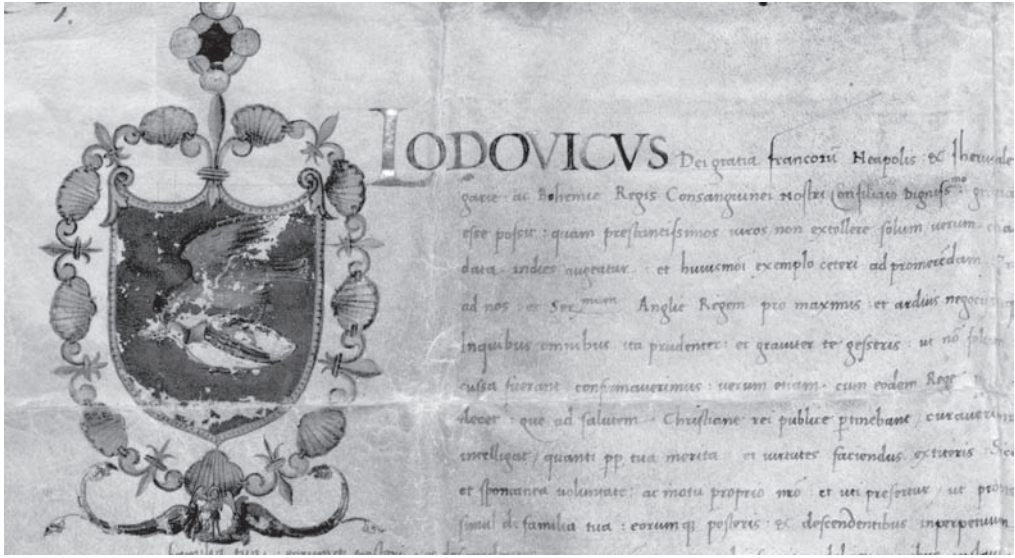 LODOVICVS Dei gratia francorū Neapolis : &
garie ac Bohemie Regis Consanguinei Nostri Consiliario Dignissᵐᵒ
esse possit : quam prestantissimos viros non extollere solum verum
data indies augeatur : et huiusmoi exemplo ceteri ad promerēdam
ad nos et Serᵐᵘᵐ Anglie Regem pro maximis et arduis
Inquibus omnibus ita prudenter : et graviter te gesseris : ut nō
fuerant confirmaverimus : verum etiam cum eodem Rege
decet : que ad salutem Christiane rei publice ptinebant / curaverimus
intelligat / quanti pp tua merita et virtutes faciendus extiteris
et spontanea voluntate : ac motu proprio nrō : et uti prefertur / ut
simul de familia tua : eorumqȝ posteris : & descendentibus inperpetuum